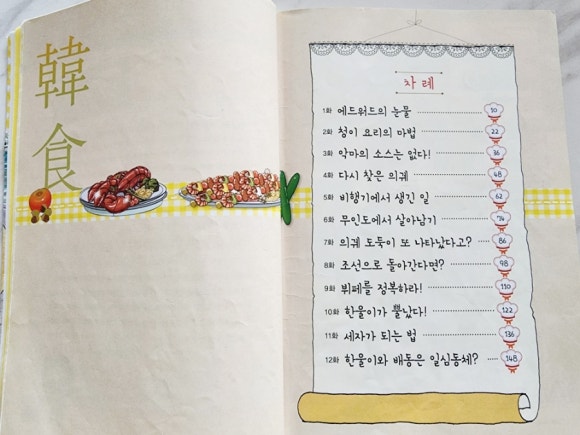 韓
食
차례
1화 에드워드의 눈물 10
2화 청이 요리의 마법 22
3화 악마의 소스는 없다! 36
4화 다시 찾은 의궤 48
5화 비행기에서 생긴 일 62
6화 무인도에서 살아남기 74
7화 의궤 도둑이 또 나타났다고? 86
8화 조선으로 돌아간다면? 98
9화 뷔페를 정복하라! 110
10화 한울이가 뿔났다! 122
11화 세자가 되는 법 136
12화 한울이와 배동은 일심동체? 148